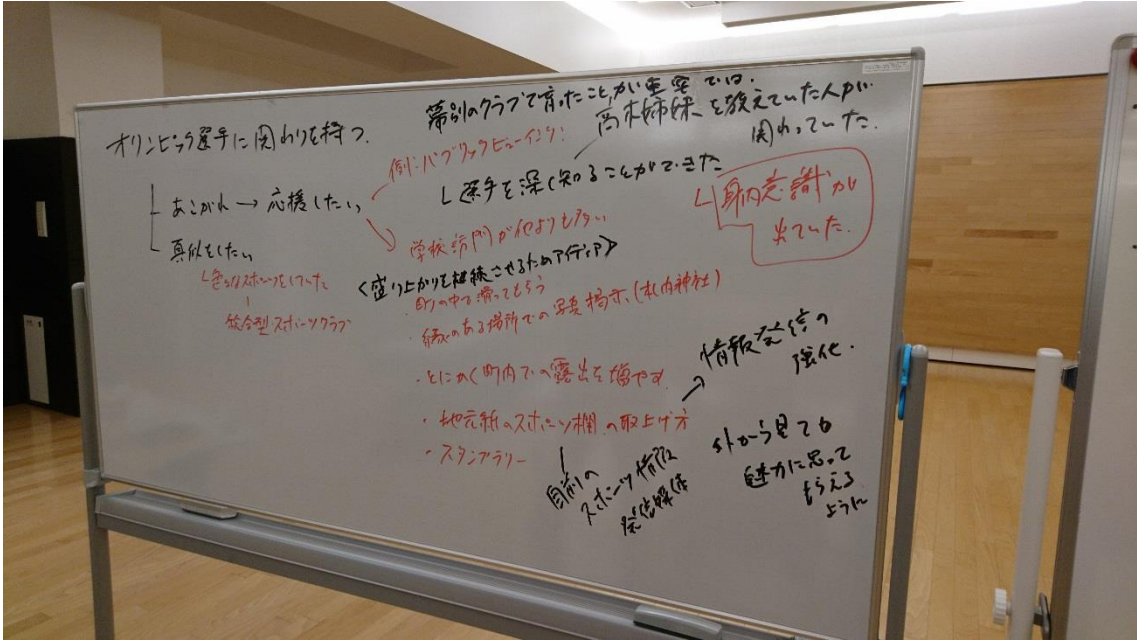 オリンピック選手に関わりを持つ.
├ あこがれ → 応援したい
└ 真似をしたい
└色々なスポーツをしていた
総合型スポーツクラブ
幕別のクラブで育ったことが重要では.
高木姉妹を教えていた人が
関わっていた.
例:パブリックビューイング!
└ 選手を深く知ることができた
└身内意識が
出ていた.
学校訪問が他よりも多い
<盛り上がりを継続させるためのアイディア>
・町の中で滑ってもらう
・縁のある場所での写真掲示、(札内神社)
・とにかく町内での露出を増やす
・地元紙のスポーツ欄の取上げ方
・スタンプラリー
自前の
スポーツ情報
発信媒体
→ 情報発信の
強化.
外から見ても
魅力に思って
もらえる
ように